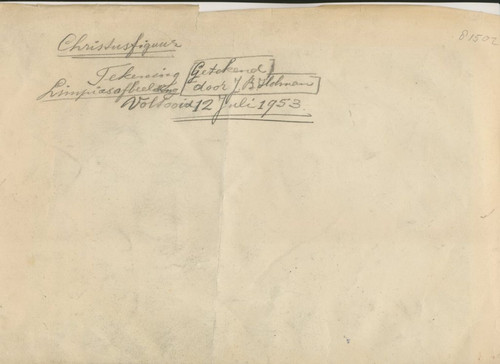 B1502
Christusfiguur
Tekening Getekend
Limpiasafbelding door J. B. Holman
Voltooid 12 Juli 1953.